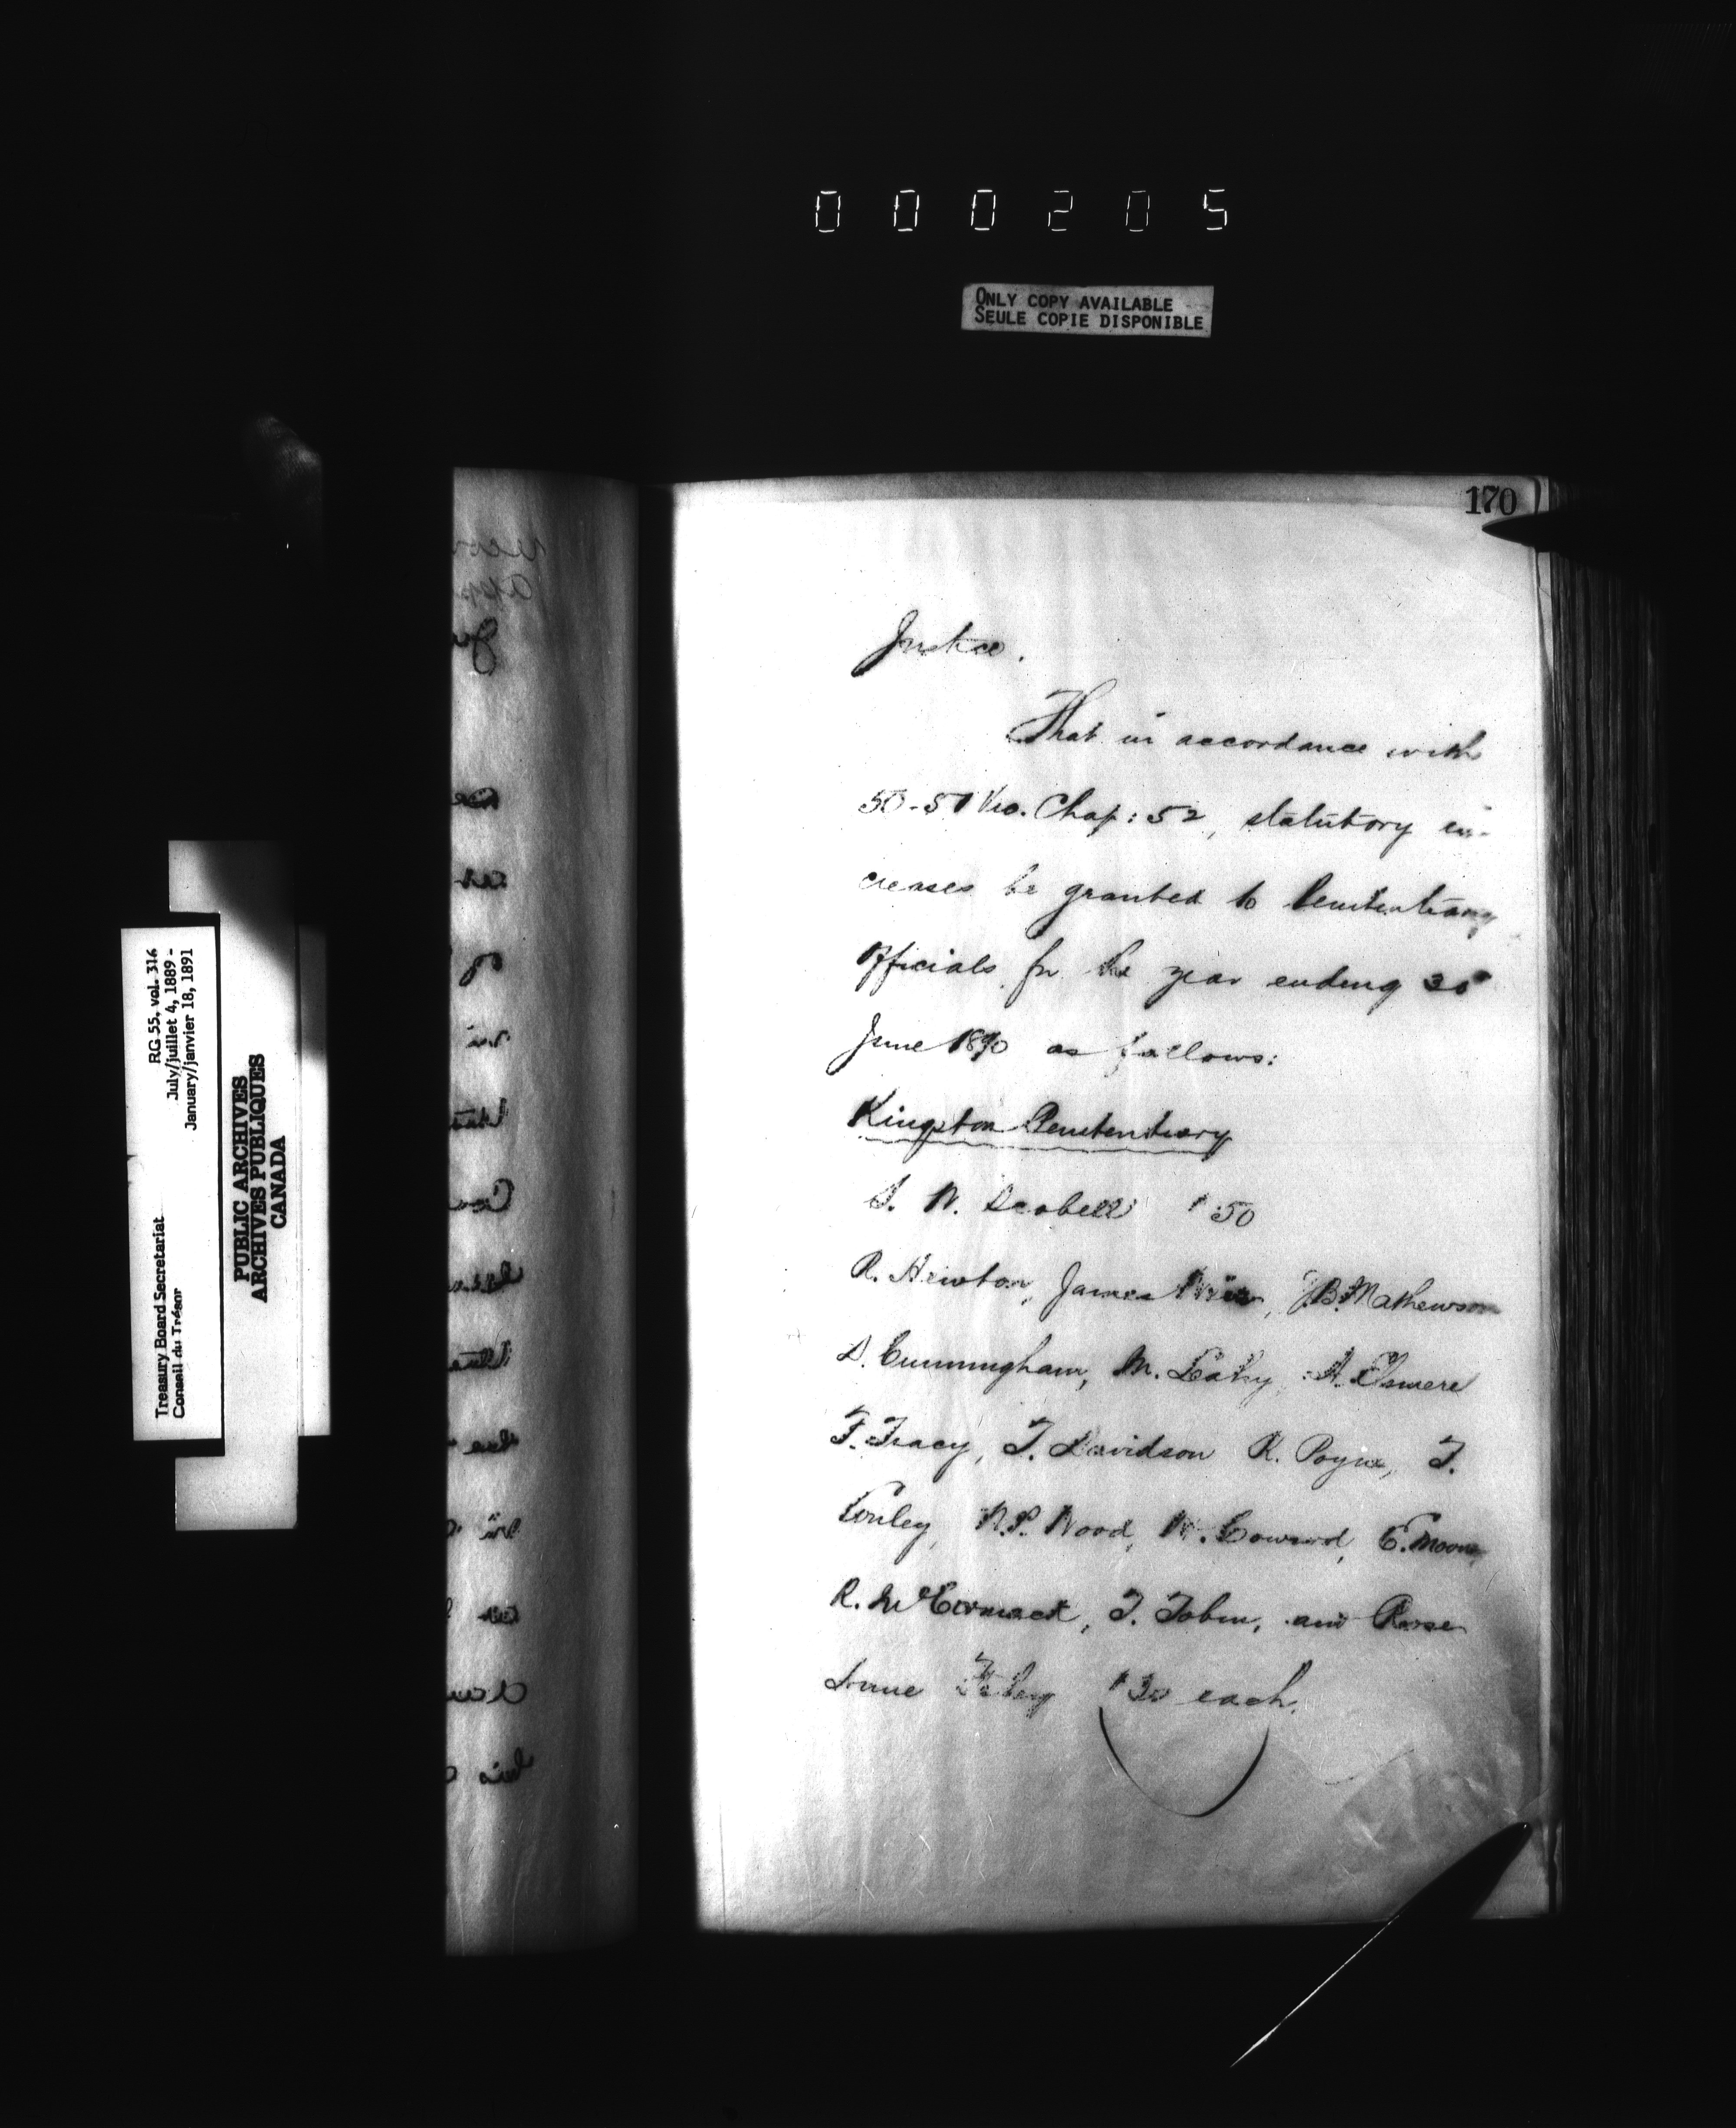 000205
ONLY COPY AVAILABLE
SEULE COPIE DISPONIBLE
170
Justice.
That in accordance with
50-51 Vic. Chap: 52, statutory in-
creases be granted to Penitentiary
Officials for the year ending 30
June 1890 as follows:
Kingston Penitentiary
S. W. Scobell $50
R. Hewton, James Weir, J.B. Mathewson
D. Cunningham, M. Leahy, A. Elsmere
F. Tracy, T. Davidson R. Poyne, T.
Conley, N.P. Wood, W. Coward, E. Moore,
R. McCormack, T. Tobin, and Rose
Anne Fahey $30 each.
RG 55, vol. 316
July/juillet 4, 1889 -
January/janvier 18, 1891
Treasury Board Secretariat
Conseil du Trésor
PUBLIC ARCHIVES
ARCHIVES PUBLIQUES
CANADA